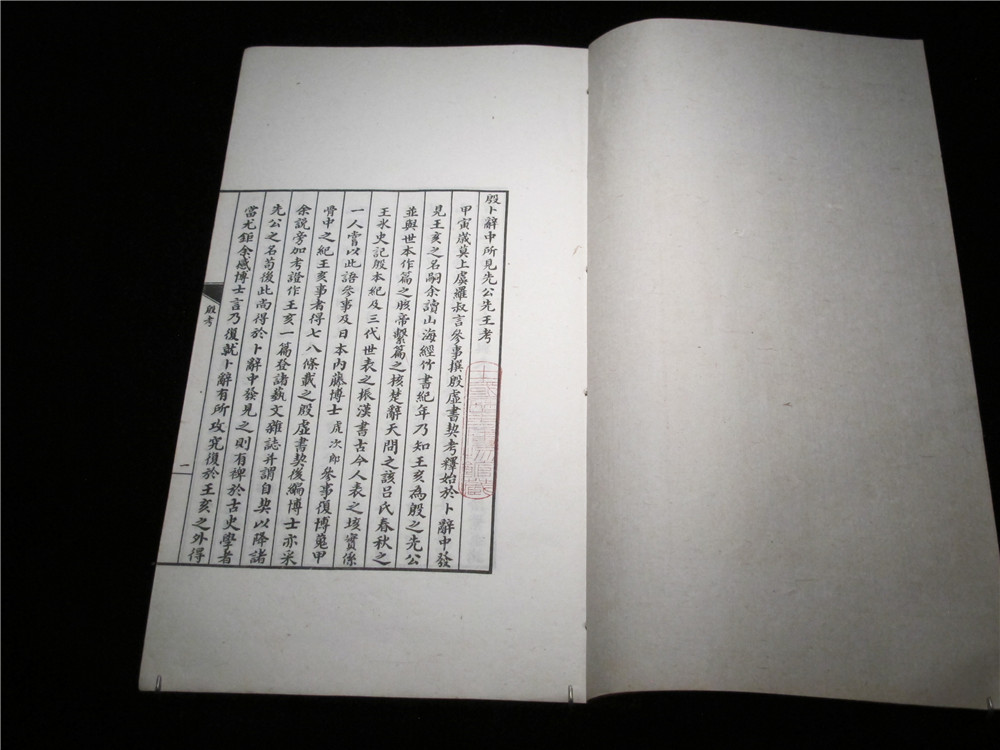 殷卜辭中所見先公先王考
甲寅歲莫上虞羅叔言參事撰殷虛書契考釋始於卜辭中發
見王亥之名嗣余讀山海經竹書紀年乃知王亥為殷之先公
並與世本作篇之胲帝繫篇之核楚辭天問之該呂氏春秋之
王氷史記殷本紀及三代世表之振漢書古今人表之垓實係
一人嘗以此語參事及日本內藤博士虎次郎參事復博蒐甲
骨中之紀王亥事者得七八條載之殷虛書契後編博士亦采
余說旁加考證作王亥一篇登諸藝文雜誌并謂自契以降諸
先公之名苟後此尚得於卜辭中發見之則有裨於古史學者
當尤鉅余感博士言乃復就卜辭有所攷究復於王亥之外得
殷考
一